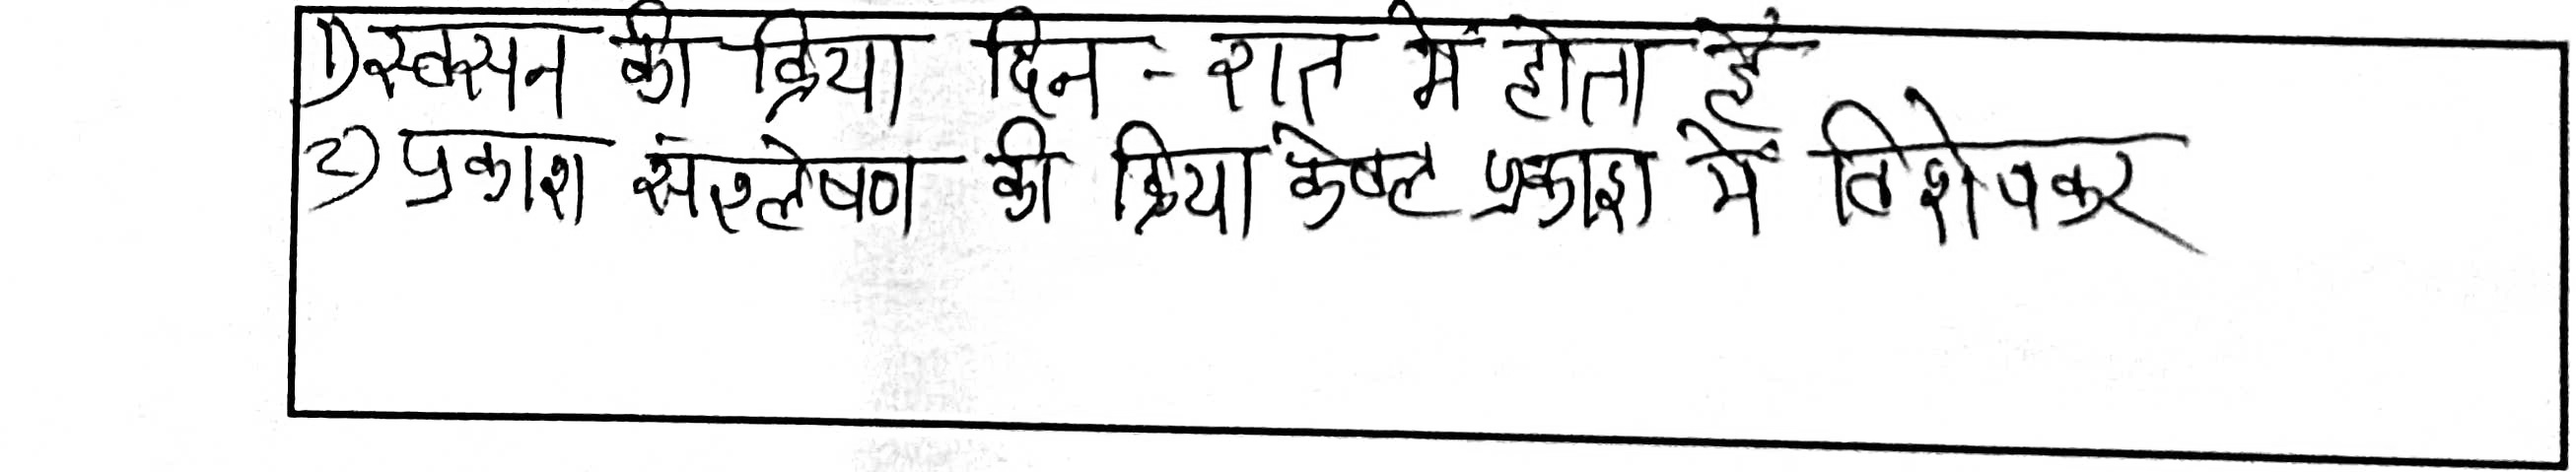 1) स्वसन की क्रिया दिन - रात में होता है
2) प्रकाश संश्लेषण की क्रिया केवल प्रकाश में विशेषकर